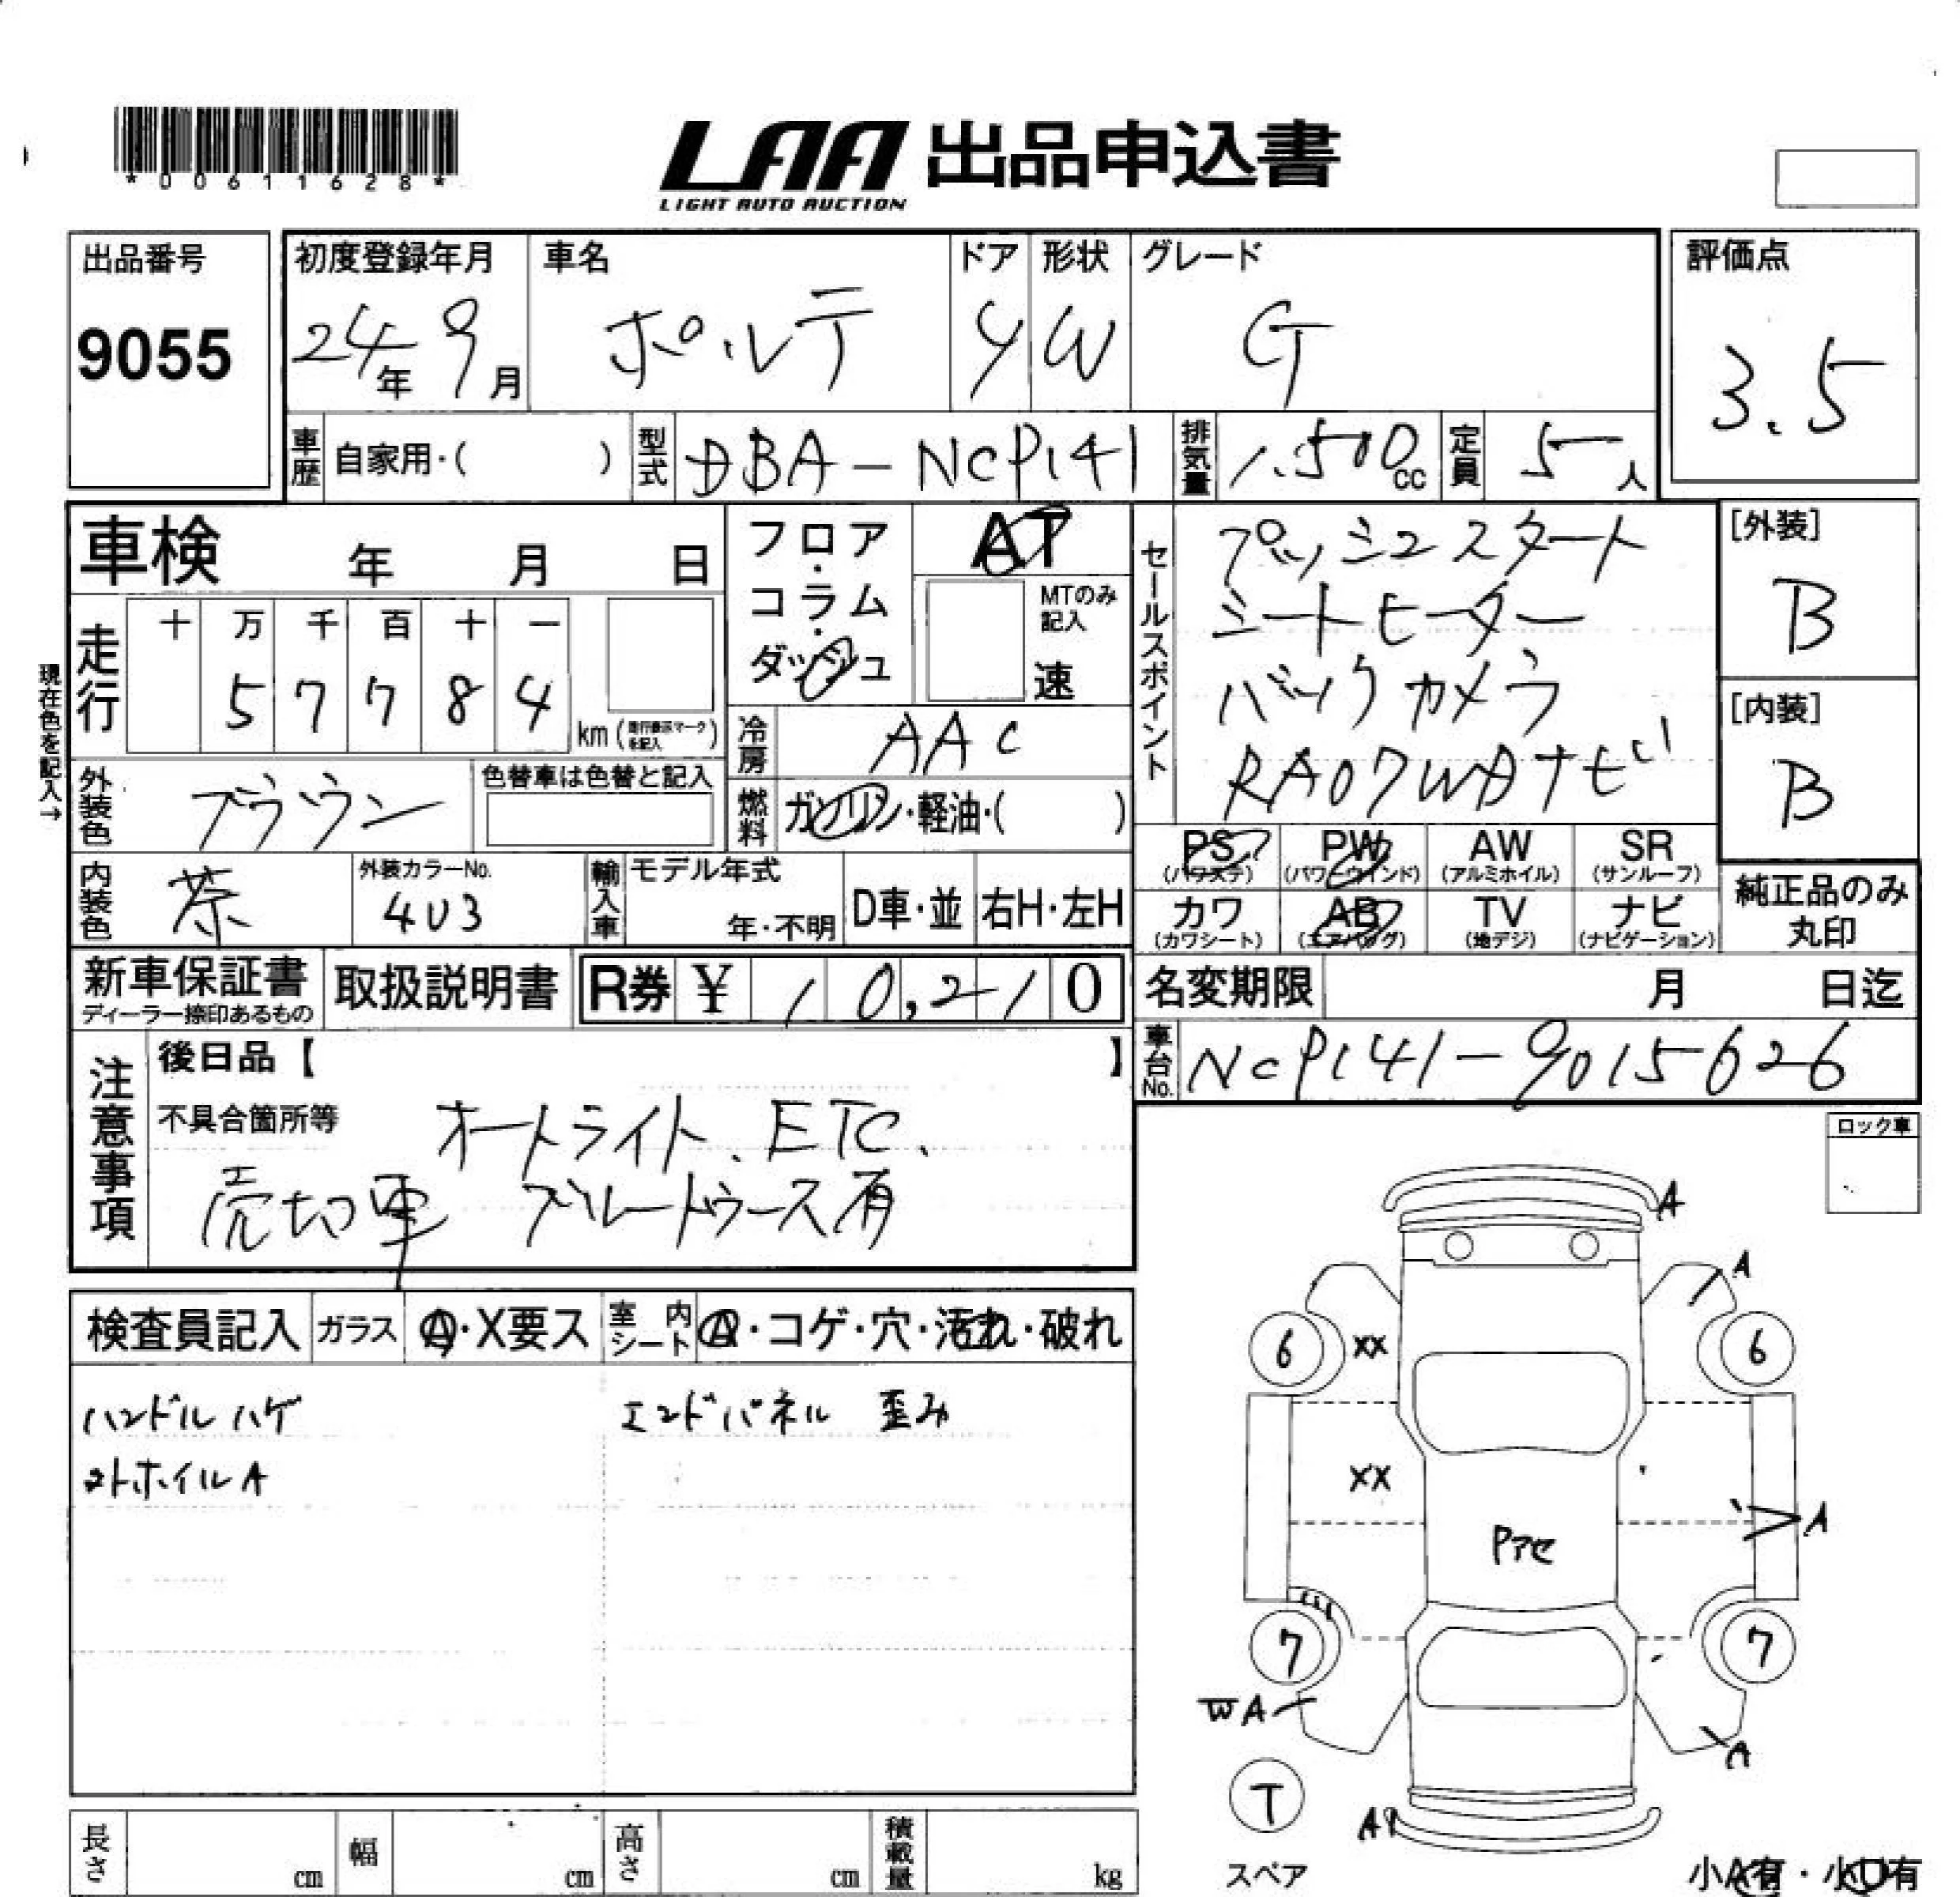 *00611628*
LAA 出品申込書
LIGHT AUTO AUCTION
出品番号
9055
初度登録年月
24年9月
車名
ポルテ
ドア
4
形状
W
グレード
G
評価点
3.5
車歴
自家用・( )
型式
DBA-NCP141
排気量
1.500cc
定員
5人
車検 年 月 日
フロア・コラム・ダッシュ
AT
MTのみ記入
速
セールスポイント
プッシュスタート
シートヒーター
バックカメラ
[外装]
B
[内装]
B
現在色を記入→
走行
十 万 千 百 十 一
5 7 7 8 4
km(走行表示マークを記入)
冷房
AAC
燃料
ガソリン・軽油・( )
外装色
ブラウン
色替車は色替と記入
内装色
茶
外装カラーNo.
4U3
輸入車
モデル年式
年・不明
D車・並
右H・左H
PS (パワステ)
PW (パワーウインド)
AW (アルミホイル)
SR (サンルーフ)
カワ (カワシート)
AB (エアバッグ)
TV (地デジ)
ナビ (ナビゲーション)
純正品のみ丸印
新車保証書
ディーラー捺印あるもの
取扱説明書
R券 ¥ 10,210
名変期限 月 日迄
車台No.
NCP141-9015626
注意事項
後日品【 】
不具合箇所等
オートライト、ETC、
売切車 ブルートゥース有
ロック車
検査員記入
ガラス
A・X要ス
室内シート
A・コゲ・穴・汚れ・破れ
ハンドルハゲ
エンドパネル 歪み
ホイルA
A
A
6
XX
6
XX
A
Pアセ
7
7
WA
A
T
スペア
A
長さ cm
幅 cm
高さ cm
積載量 kg
小A有・小U有